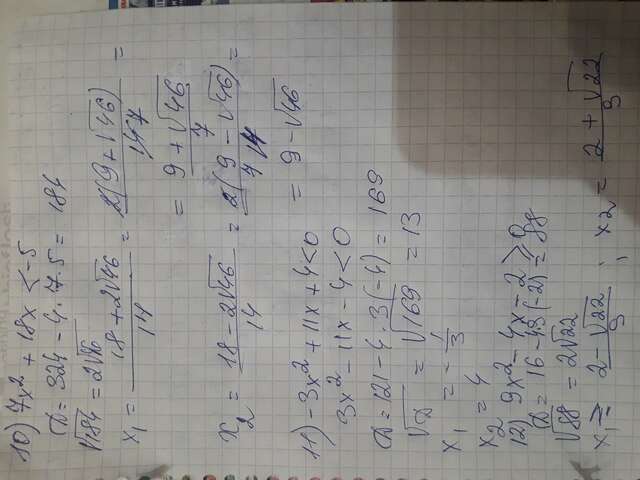 10) 7x² + 18x < -5
D = 324 - 4·7·5 = 184
√184 = 2√46
x₁ = (18 + 2√46)/14 = 2(9 + √46)/14 7 =
= (9 + √46)/7
x₂ = (18 - 2√46)/14 = 2(9 - √46)/7 14 =
= 9 - √46
11) -3x² + 11x + 4 < 0
3x² - 11x - 4 < 0
D = 121 - 4·3(-4) = 169
√D = √169 = 13
x₁ = -1/3
x₂ = 4
12) 9x² - 4x - 2 ≥ 0
D = 16 - 4·9(-2) = 88
√88 = 2√22
x₁ = (2 - √22)/9 ; x₂ = (2 + √22)/9